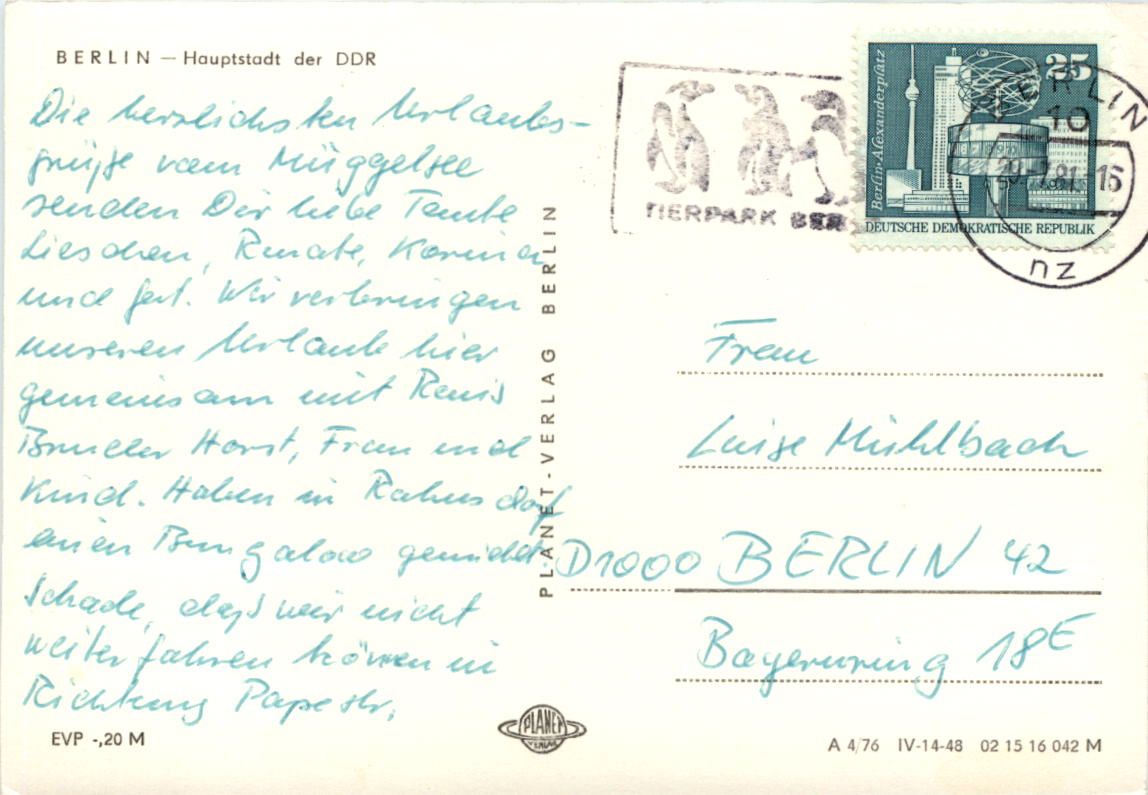 BERLIN — Hauptstadt der DDR
Die herzlichsten Urlaubs-
grüße vom Müggelsee
senden Dir liebe Tante
Lieschen, Renate, Karin
und Gert. Wir verbringen
unseren Urlaub hier
gemeinsam mit Renis
Bruder Horst, Frau und
Kind. Haben in Rahnsdorf
einen Bungalow gemietet.
Schade, daß wir nicht
weiterfahren können in
Richtung Papestr.
EVP -,20 M
PLANET-VERLAG BERLIN
PLANET
VERLAG
TIERPARK BER
Berlin·Alexanderplatz
25
DEUTSCHE DEMOKRATISCHE REPUBLIK
BERLIN
10
81 16
nz
Frau
Luise Mühlbach
D1000 BERLIN 42
Bayernring 18E
A 4/76 IV-14-48 02 15 16 042 M